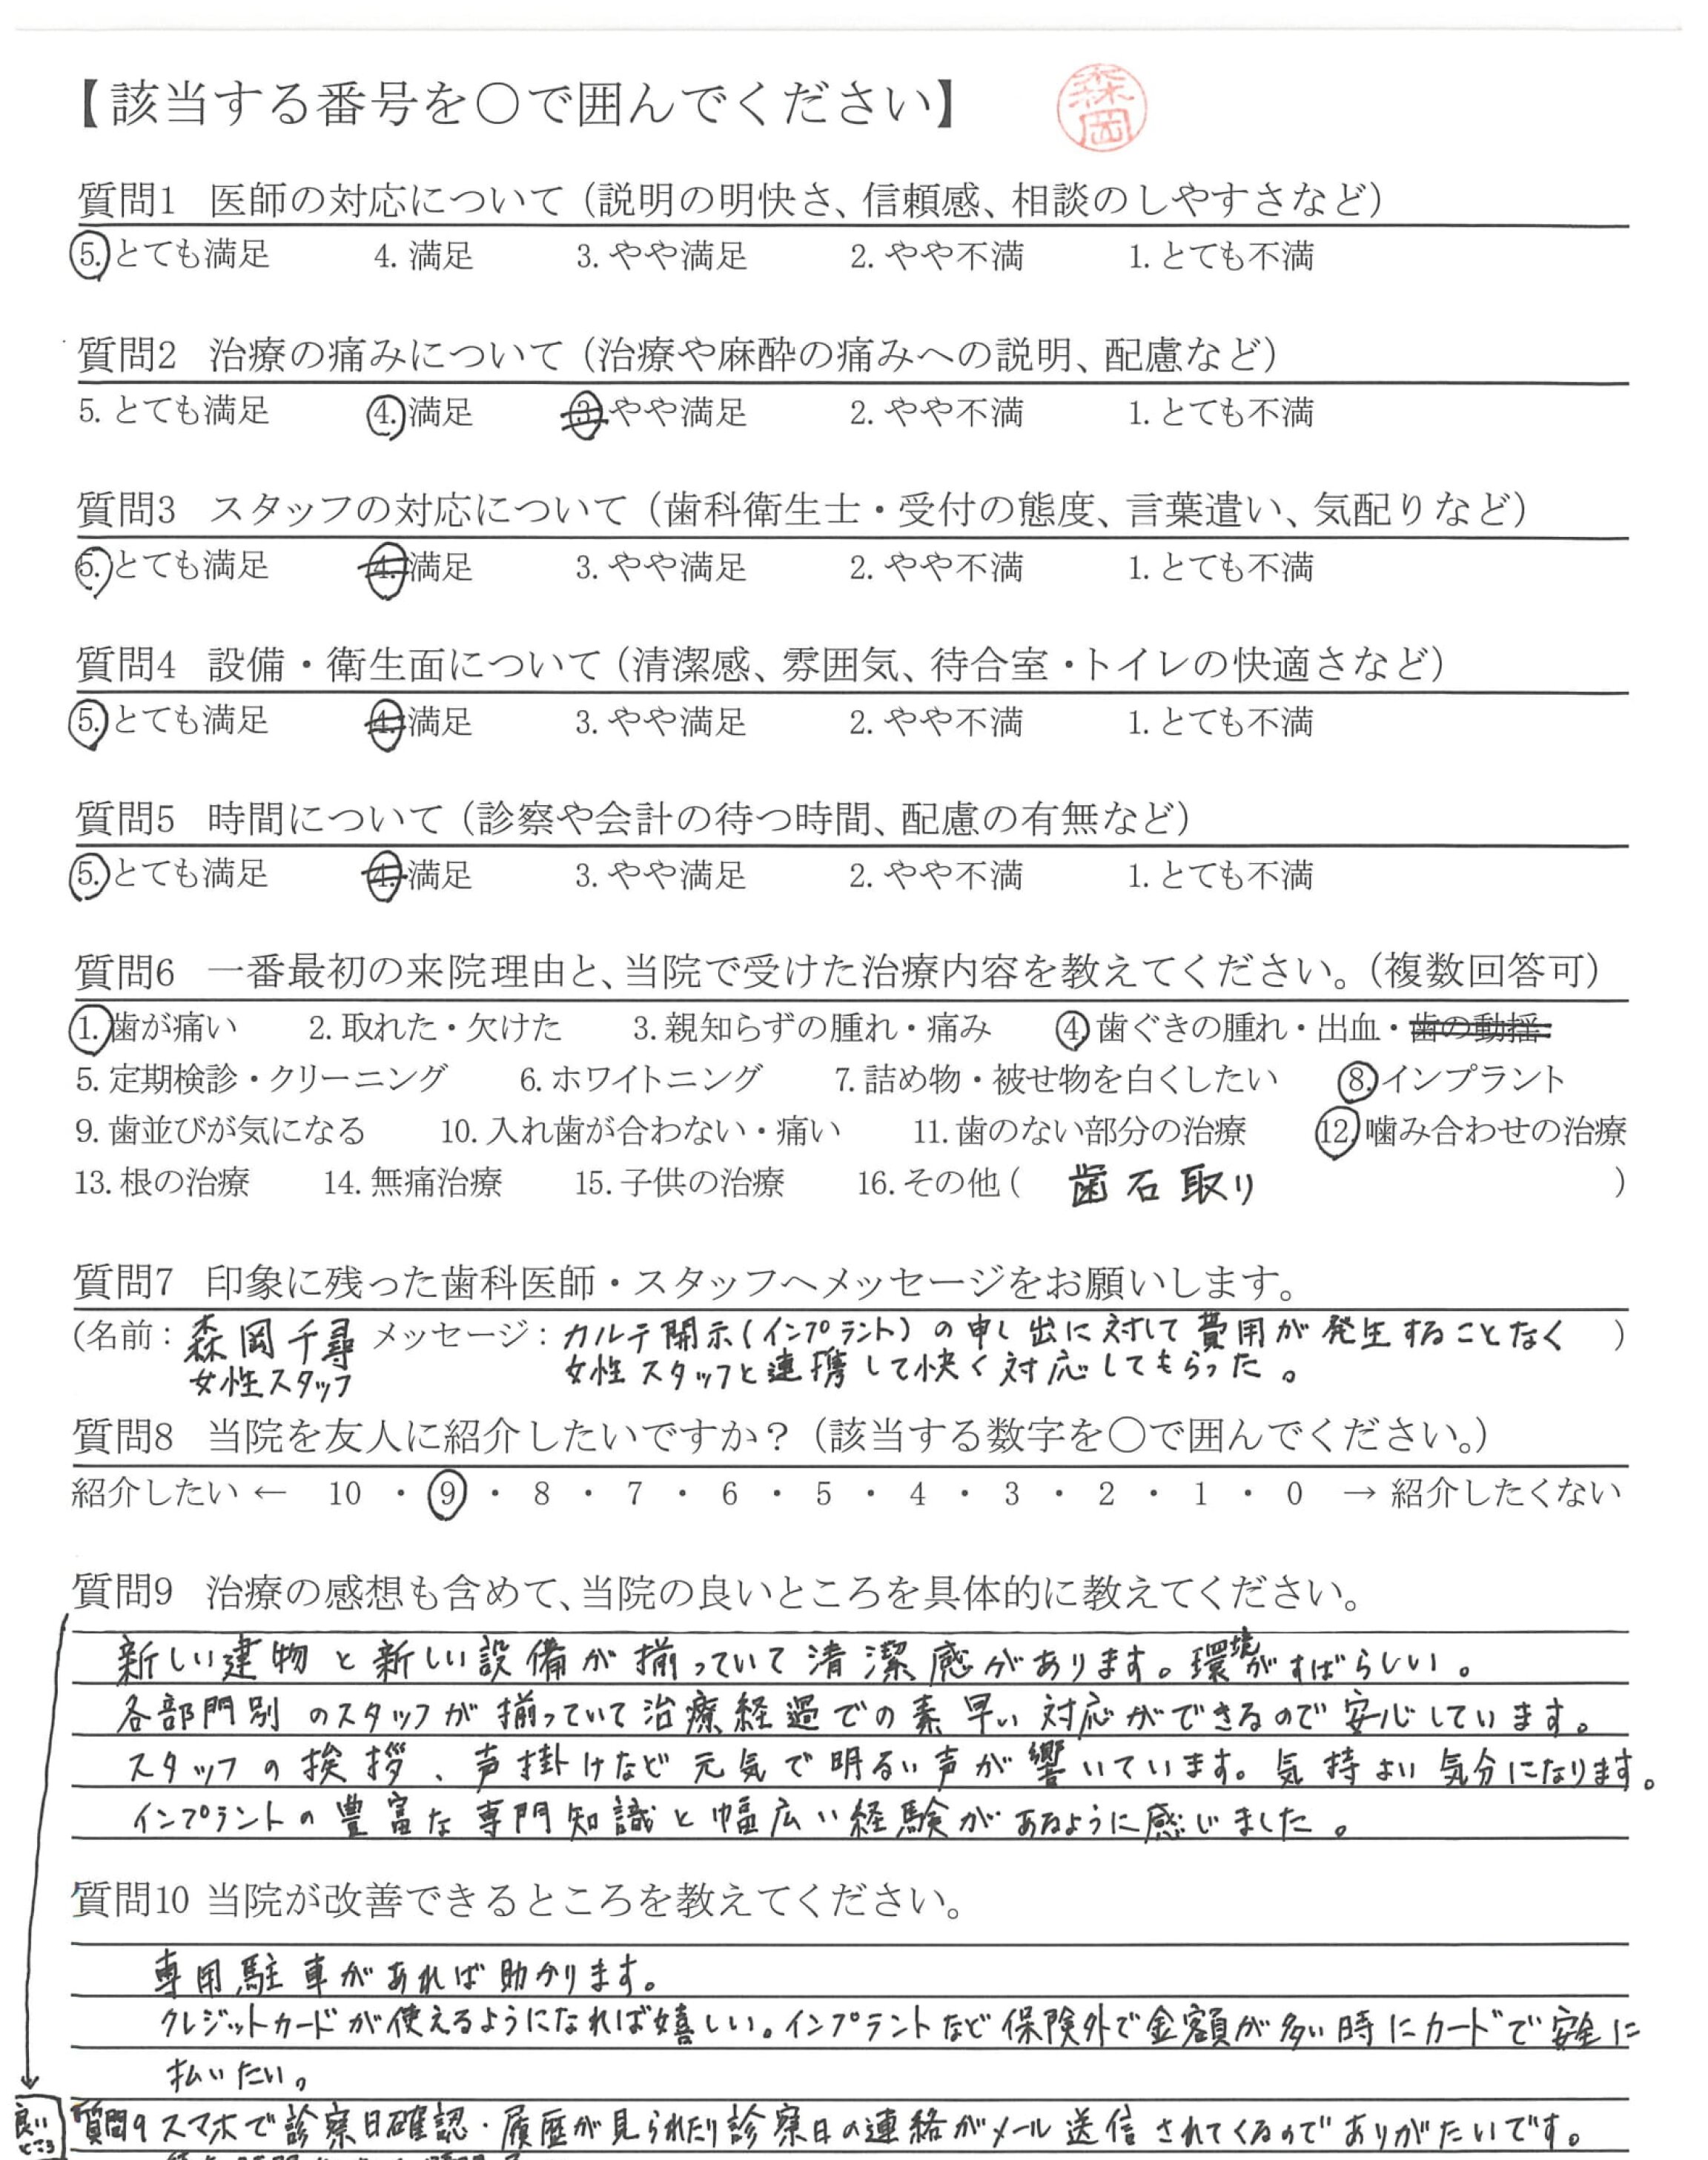 【該当する番号を○で囲んでください】 森岡
質問1 医師の対応について（説明の明快さ、信頼感、相談のしやすさなど）
5.とても満足 4.満足 3.やや満足 2.やや不満 1.とても不満
質問2 治療の痛みについて（治療や麻酔の痛みへの説明、配慮など）
5.とても満足 4.満足 3.やや満足 2.やや不満 1.とても不満
質問3 スタッフの対応について（歯科衛生士・受付の態度、言葉遣い、気配りなど）
5.とても満足 4.満足 3.やや満足 2.やや不満 1.とても不満
質問4 設備・衛生面について（清潔感、雰囲気、待合室・トイレの快適さなど）
5.とても満足 4.満足 3.やや満足 2.やや不満 1.とても不満
質問5 時間について（診察や会計の待つ時間、配慮の有無など）
5.とても満足 4.満足 3.やや満足 2.やや不満 1.とても不満
質問6 一番最初の来院理由と、当院で受けた治療内容を教えてください。（複数回答可）
1.歯が痛い 2.取れた・欠けた 3.親知らずの腫れ・痛み 4.歯ぐきの腫れ・出血・歯の動揺
5.定期検診・クリーニング 6.ホワイトニング 7.詰め物・被せ物を白くしたい 8.インプラント
9.歯並びが気になる 10.入れ歯が合わない・痛い 11.歯のない部分の治療 12.噛み合わせの治療
13.根の治療 14.無痛治療 15.子供の治療 16.その他（ 歯石取り ）
質問7 印象に残った歯科医師・スタッフへメッセージをお願いします。
（名前：森岡千尋 メッセージ：カルテ開示(インプラント)の申し出に対して費用が発生することなく ）
女性スタッフ 女性スタッフと連携して快く対応してもらった。
質問8 当院を友人に紹介したいですか？（該当する数字を○で囲んでください。）
紹介したい ← 10 ・ 9 ・ 8 ・ 7 ・ 6 ・ 5 ・ 4 ・ 3 ・ 2 ・ 1 ・ 0 → 紹介したくない
質問9 治療の感想も含めて、当院の良いところを具体的に教えてください。
新しい建物と新しい設備が揃っていて清潔感があります。環境がすばらしい。
各部門別のスタッフが揃っていて治療経過での素早い対応ができるので安心しています。
スタッフの挨拶、声掛けなど元気で明るい声が響いています。気持よい気分になります。
インプラントの豊富な専門知識と幅広い経験があるように感じました。
質問10 当院が改善できるところを教えてください。
専用駐車があれば助かります。
クレジットカードが使えるようになれば嬉しい。インプラントなど保険外で金額が多い時にカードで安全に
払いたい。
良いところ 質問9 スマホで診察日確認・履歴が見られたり診察日の連絡がメール送信されてくるのでありがたいです。